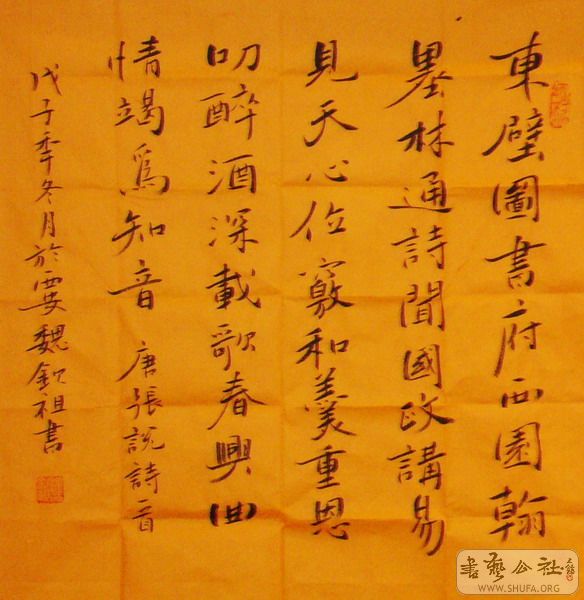 東壁圖書府西園翰
墨林通詩聞國政講易
見天心位竅和羹重恩
叨醉酒深載歌春興曲
情竭爲知音 唐張說詩一首
戊子秊冬月於西安魏欽祖書
書藝公社
WWW.SHUFA.ORG